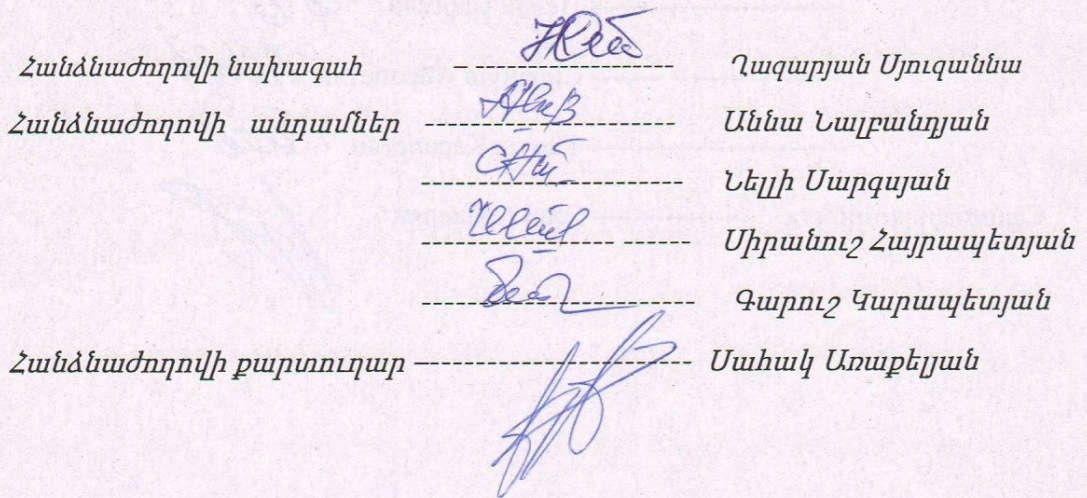 Հանձնաժողովի նախագահ ---------------------- Ղազարյան Սյուզաննա
Հանձնաժողովի անդամներ ------------------------- Աննա Նալբանդյան
-------------------------- Նելլի Սարգսյան
------------------- ------- Սիրանուշ Հայրապետյան
--------------------------- Գարուշ Կարապետյան
Հանձնաժողովի քարտուղար ---------------------------- Սահակ Առաքելյան